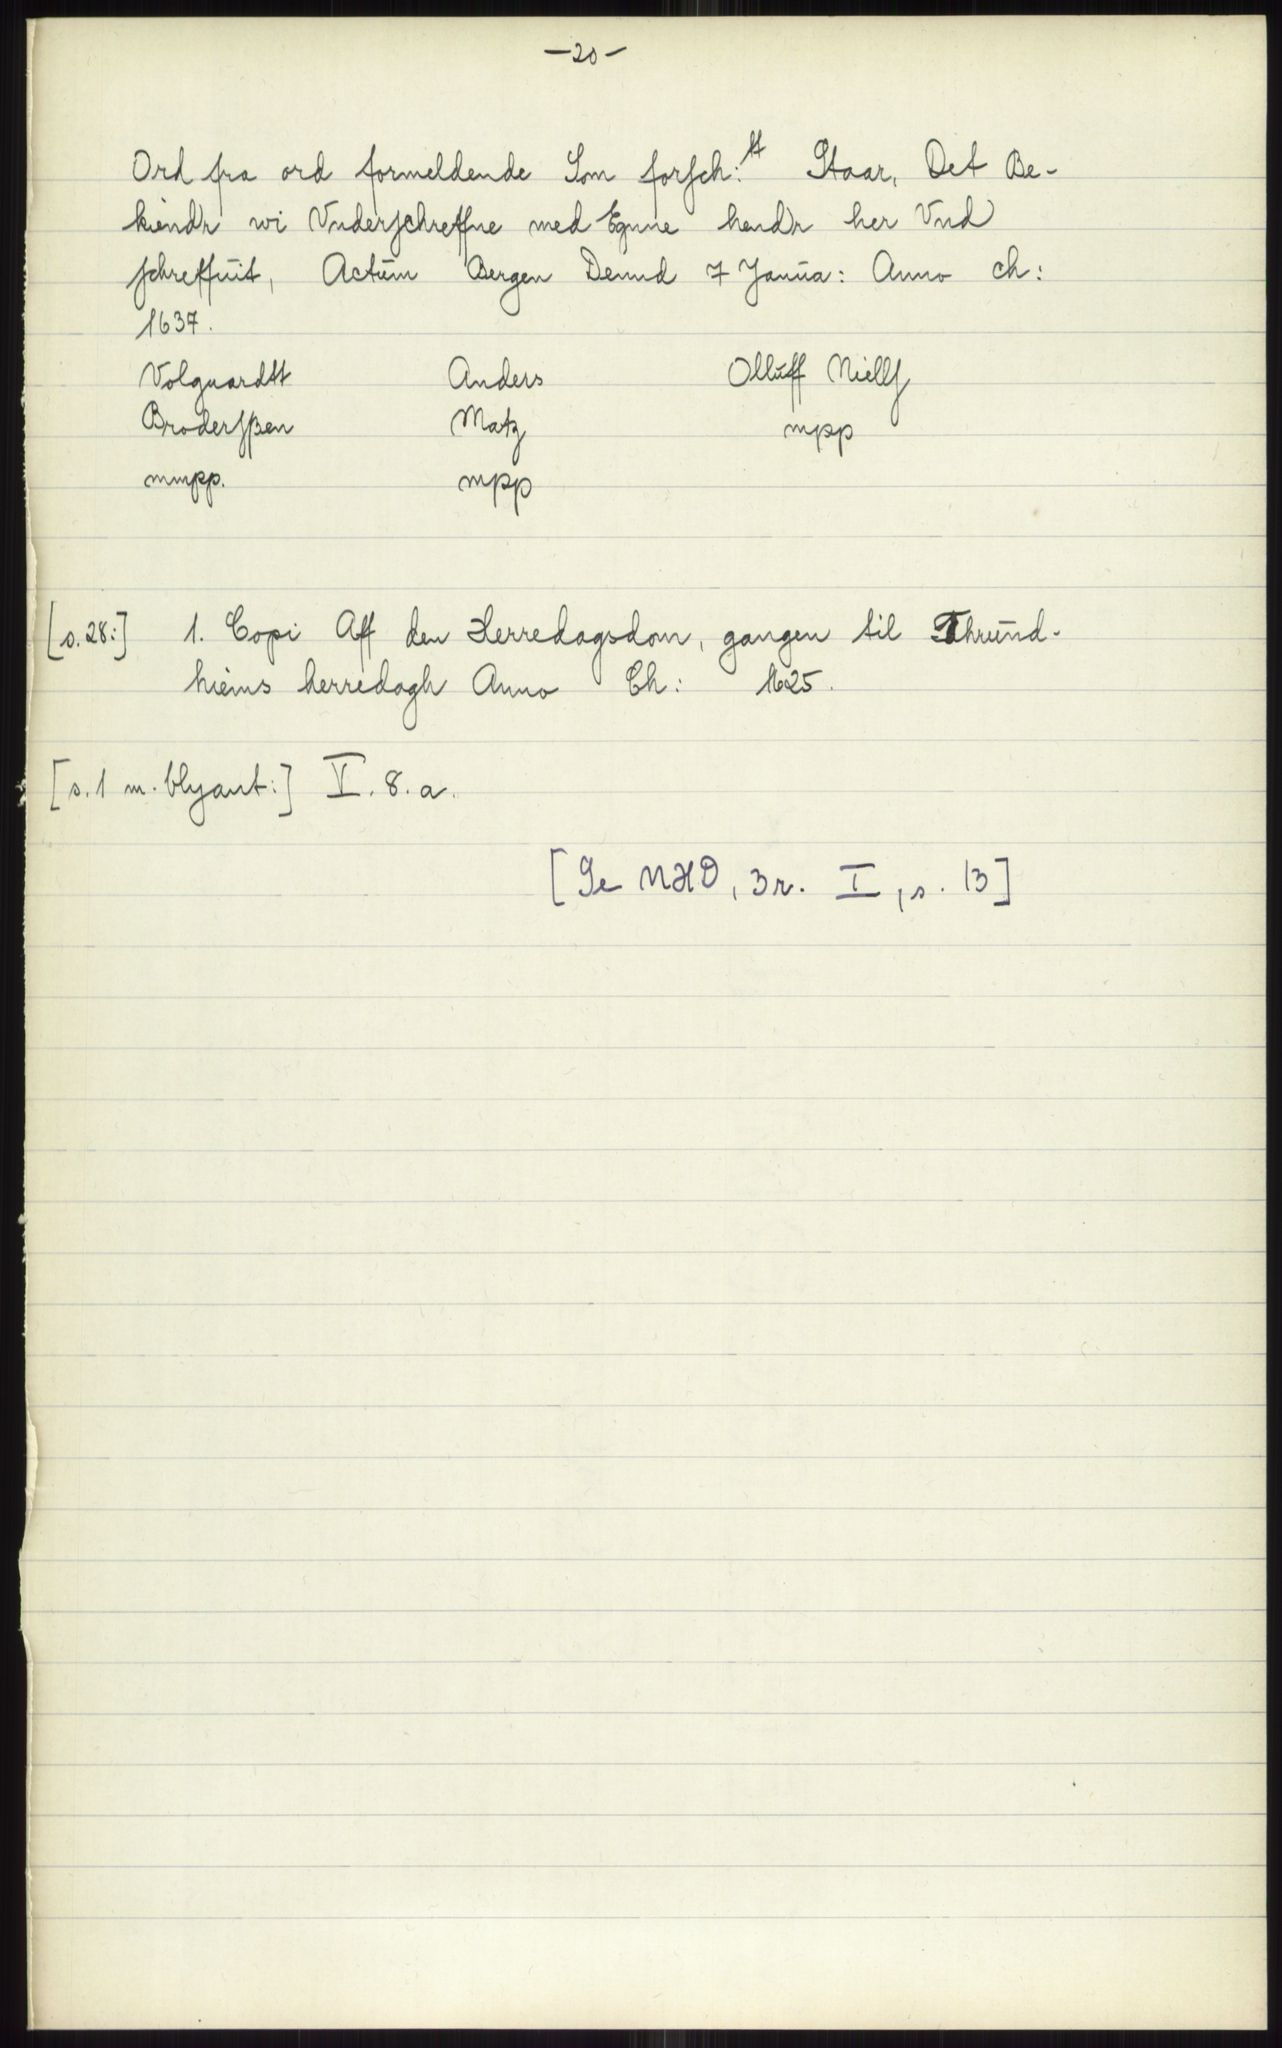 -20-
Ord fra ord formeldende Som forsch:tt Staar, Det Be-
kiendr wi Vnderschreffne med Egnne hendr her Vnd
schreffuit, Actum Bergen Dennd 7 Janua: Anno ch:
1637.
Volquardtt Anders Olluff Niells
Broderssen Matz mpp
mmpp. mpp
[s.28:] 1. Copi Aff den Herredagsdom, gangen til Thrund-
hiems herredagh Anno Ch: 1625.
[s.1 m. blyant:] V. 8. a.
[Se NHD, 3 r. I, s. 13]